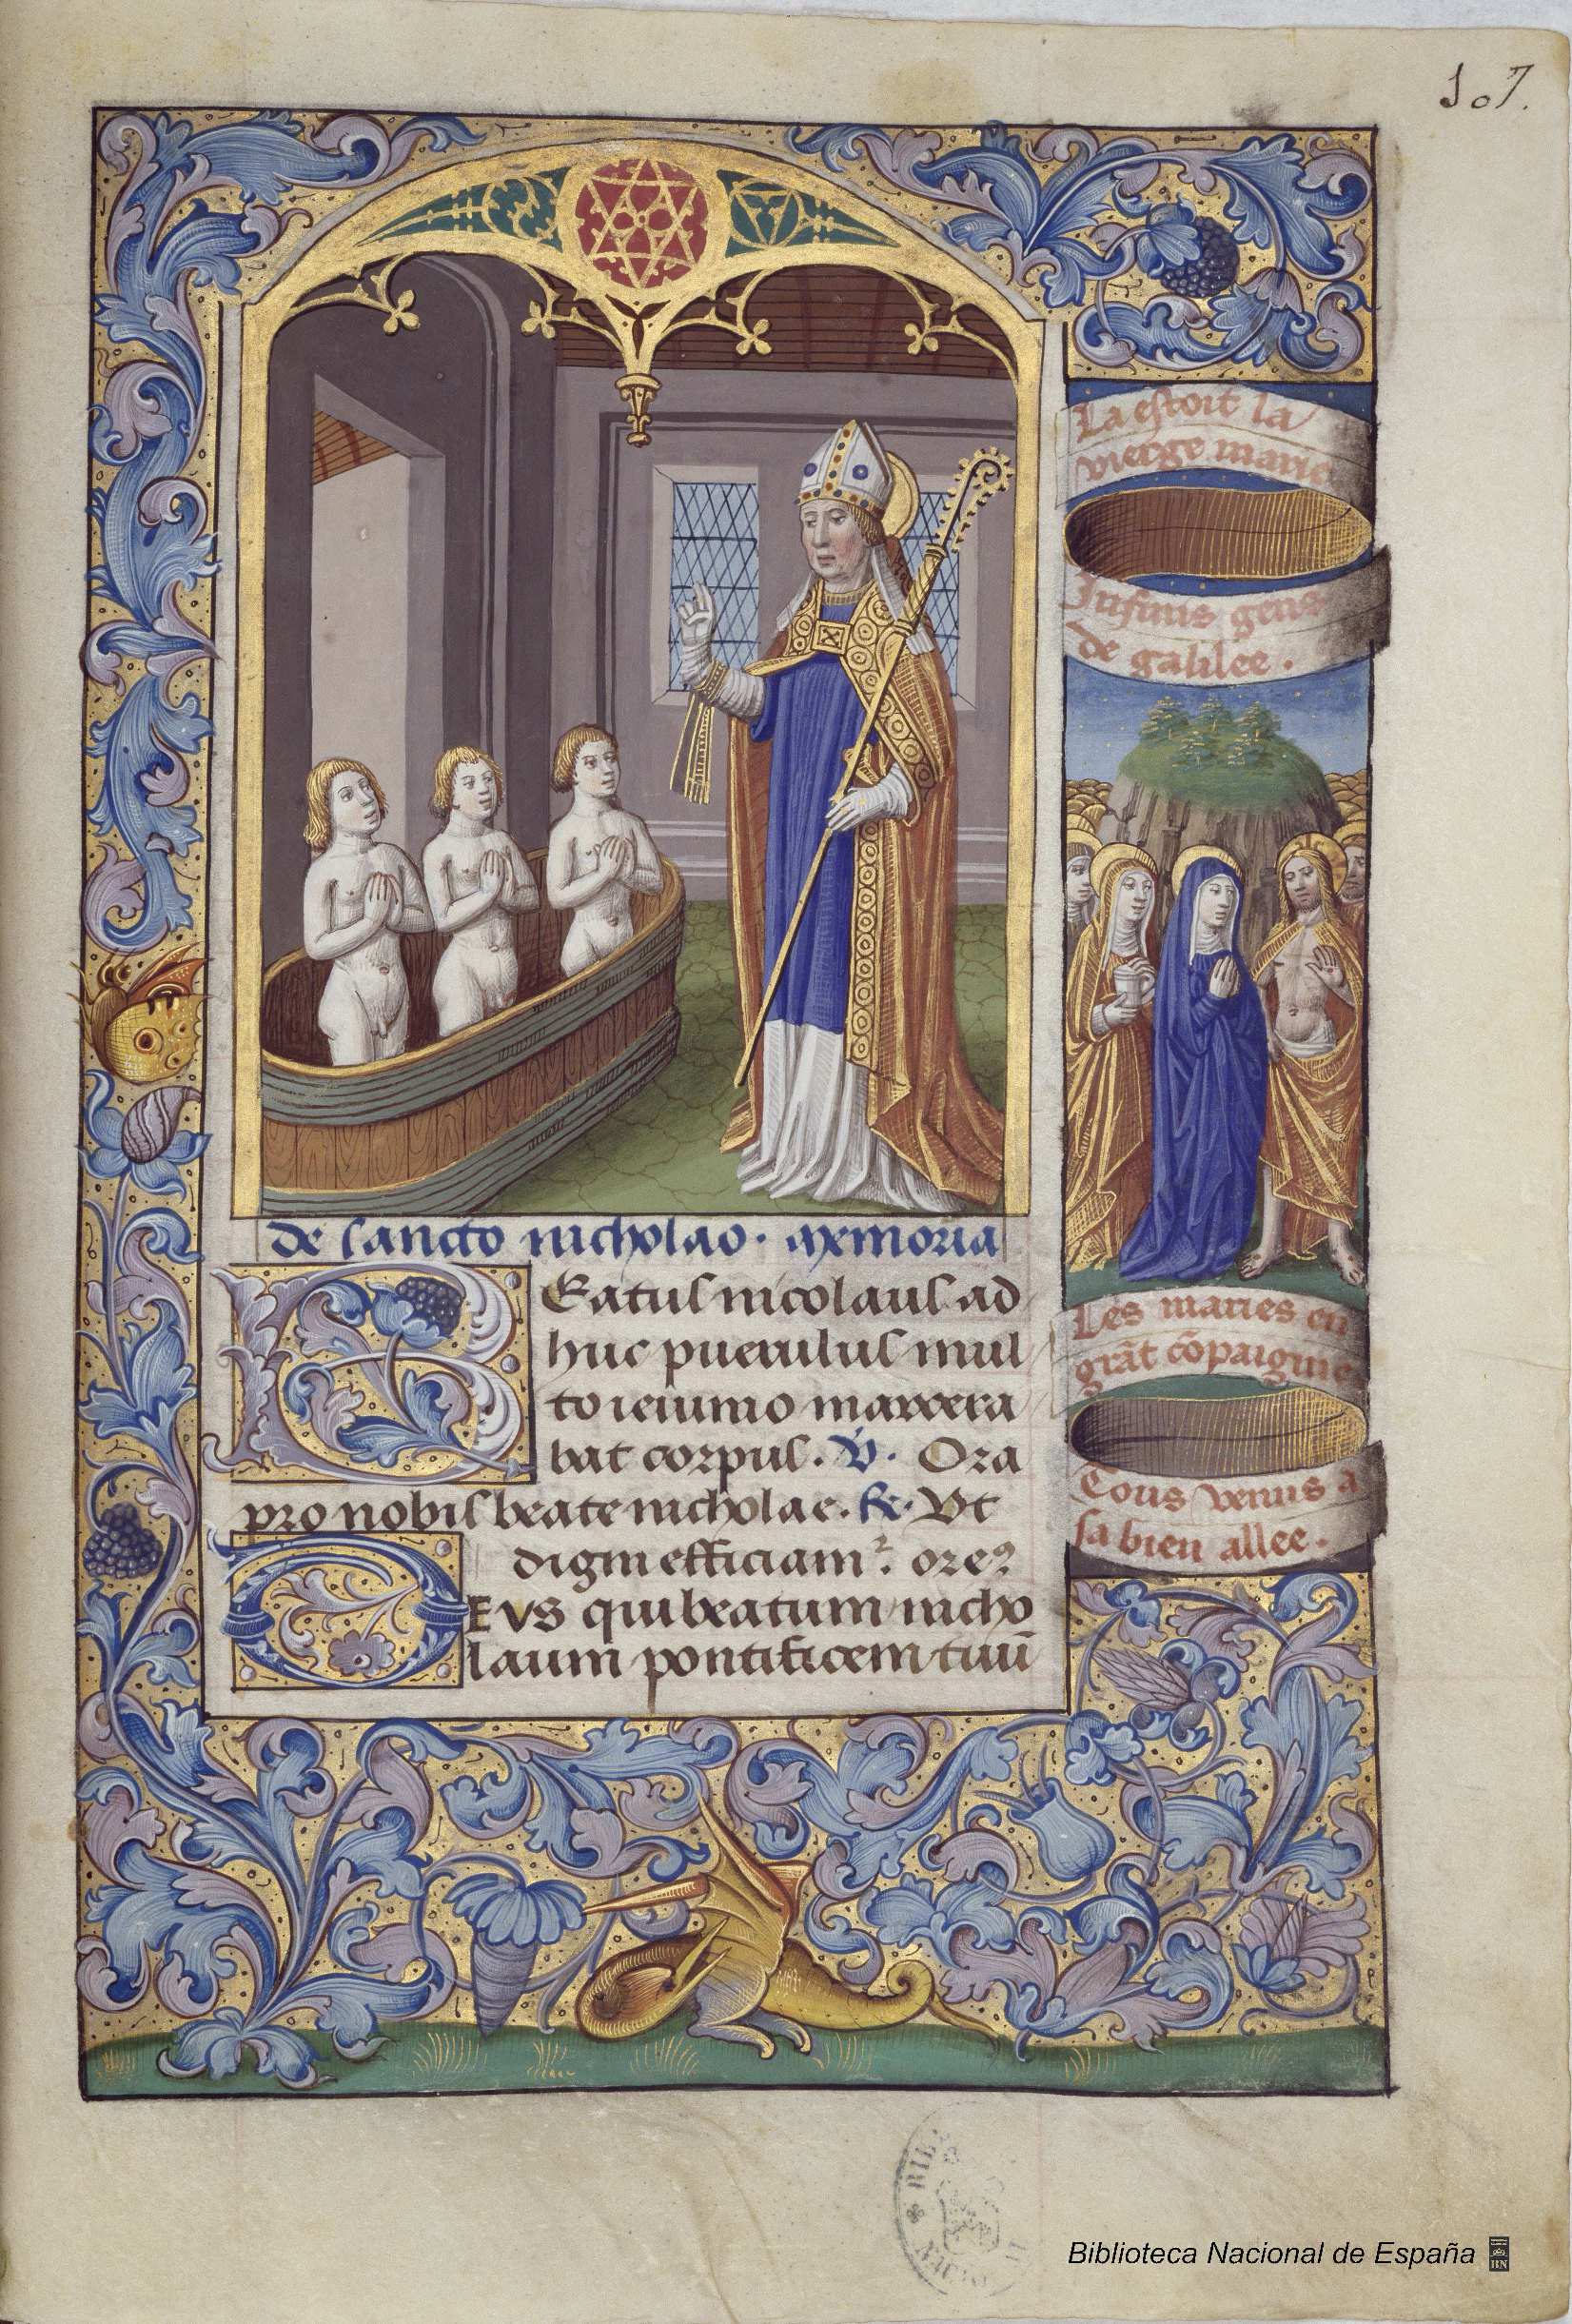 107.
La estoit la
vierge marie
Infinis gens
de galilee.
de sancto nicholao. memoria
Beatus nicolaus ad
huc puerulus mul
to ieiunio macera
bat corpus. V. Ora
pro nobis beate nicholae. Re. Vt
digni efficiam². oreꝫ
DEVS qui beatum nicho
laum pontificem tuū
Les maries en
grāt cōpaignie
Tous venus a
sa bien allee.
Biblioteca Nacional de España
BN